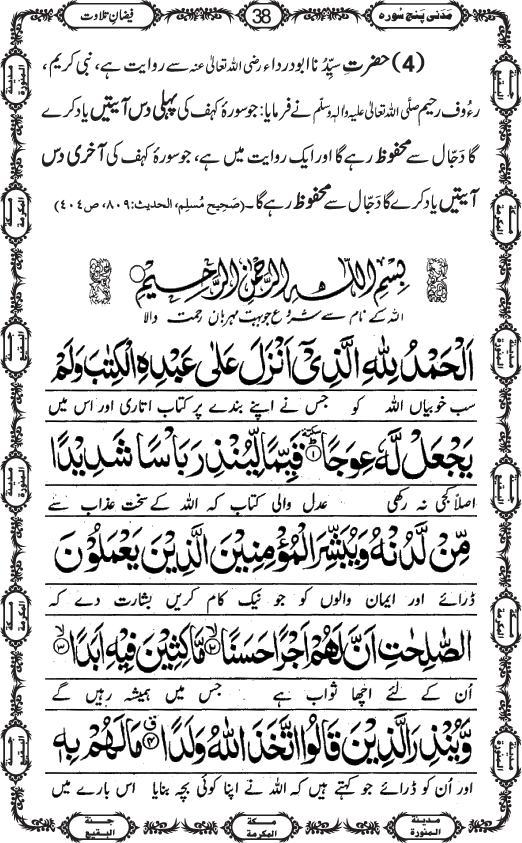 مَدَنی پَنج سُورہ
38
فیضانِ تلاوت
(4) حضرتِ سیِّدُنا ابودرداء رضی اللہ تعالیٰ عنہ سے روایت ہے، نبی کریم،
رءُوف رحیم صلَّی اللہ تعالیٰ علیہ والہٖ وسلَّم نے فرمایا: جو سورۂ کہف کی پہلی دس آیتیں یاد کرے
گا دَجّال سے محفوظ رہے گا اور ایک روایت میں ہے، جو سورۂ کہف کی آخری دس
آیتیں یاد کرے گا دَجّال سے محفوظ رہے گا۔ (صَحِیح مُسلِم، الحدیث:۸۰۹، ص۴۰۴)
بِسْمِ اللہِ الرَّحْمٰنِ الرَّحِیْمِ
اللہ کے نام سے شروع جو بہت مہربان رحمت والا
اَلْحَمْدُ لِلّٰهِ الَّذِیْۤ اَنْزَلَ عَلٰی عَبْدِهِ الْكِتٰبَ وَ لَمْ
سب خوبیاں اللہ کو جس نے اپنے بندے پر کتاب اتاری اور اس میں
یَجْعَلْ لَّهٗ عِوَجًا ؕ ۱ سكتة قَیِّمًا لِّیُنْذِرَ بَاْسًا شَدِیْدًا
اصلاً کجی نہ رکھی عدل والی کتاب کہ اللہ کے سخت عذاب سے
مِّنْ لَّدُنْهُ وَ یُبَشِّرَ الْمُؤْمِنِیْنَ الَّذِیْنَ یَعْمَلُوْنَ
ڈرائے اور ایمان والوں کو جو نیک کام کریں بشارت دے کہ
الصّٰلِحٰتِ اَنَّ لَهُمْ اَجْرًا حَسَنًا ۙ۲ مَّاكِثِیْنَ فِیْهِ اَبَدًا ۙ۳
اُن کے لئے اچھا ثواب ہے جس میں ہمیشہ رہیں گے
وَّ یُنْذِرَ الَّذِیْنَ قَالُوا اتَّخَذَ اللّٰهُ وَلَدًا ۗ۴ مَا لَهُمْ بِهٖ
اور اُن کو ڈرائے جو کہتے ہیں کہ اللہ نے اپنا کوئی بچہ بنایا اس بارے میں
مدینۃ المنورۃ
مکۃ المکرمۃ
جنۃ البقیع
مدینۃ المنورۃ
مکۃ المکرمۃ
جنۃ البقیع
جنۃ البقیع
مکۃ المکرمۃ
مدینۃ المنورۃ
جنۃ البقیع
مکۃ المکرمۃ
مدینۃ المنورۃ
مدینۃ المنورۃ
مکۃ المکرمۃ
جنۃ البقیع